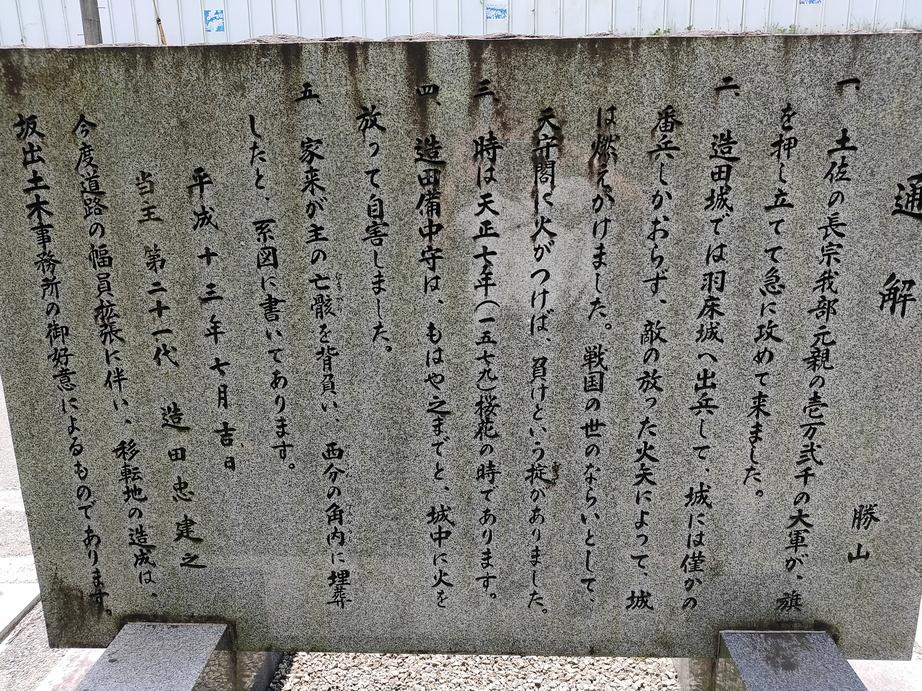 通解
勝山
一 土佐の長宗我部元親の壱万弐千の大軍が、旗
を押し立てて急に攻めて来ました。
二 造田城では羽床城へ出兵して、城には僅かの
番兵しかおらず、敵の放った火矢によって、城
は燃えかけました。戦国の世のならいとして、
天守閣に火がつけば、負けという掟がありました。
三 時は天正七年(一五七九)桜花の時であります。
四 造田備中守は、もはや之までと、城中に火を
放って自害しました。
五 家来が主の亡骸を背負い、西分の角内に埋葬
したと、系図に書いてあります。
平成十三年七月吉日
当主 第二十一代 造田忠建之
今度道路の幅員拡張に伴い、移転地の造成は、
坂出土木事務所の御好意によるものであります。